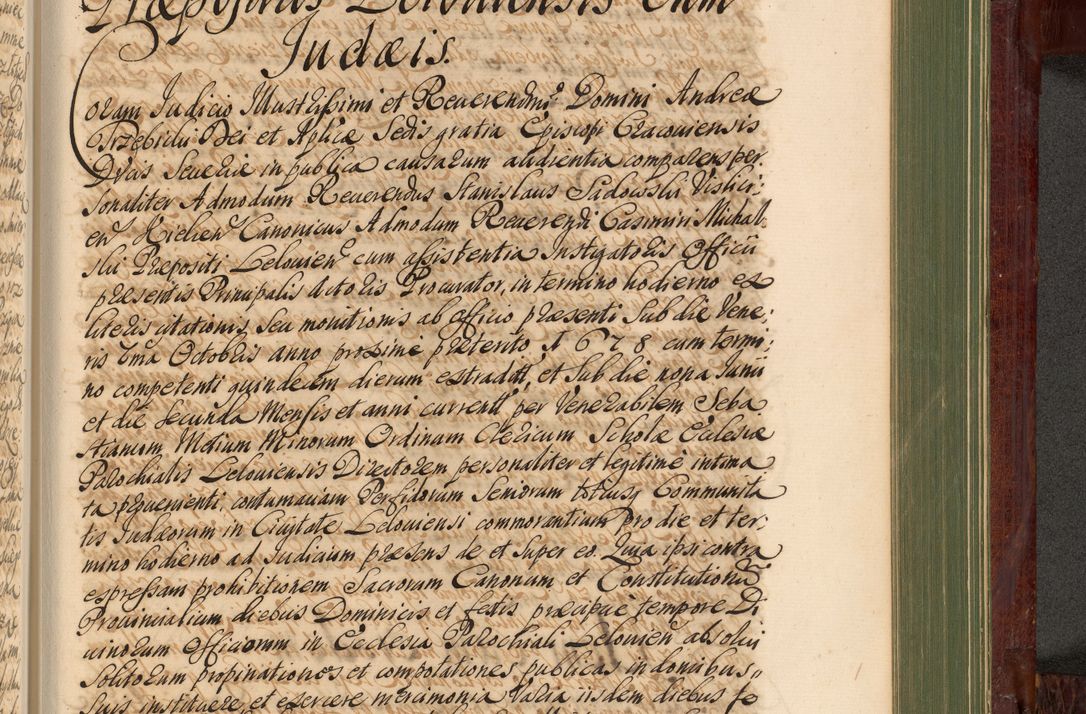 Præpositus Leloviensis Cum
Judæis.
Coram Judicio Illustrissimi et Reverendmi Domini Andreæ
Trzebicki Dei et Aplicæ Sedis gratia Episcopi Cracoviensis
Ducis Severiæ in publica causarum audientia comparens per.
sonaliter Admodum Reverendus Stanislaus Sadowski Vislici:
en Kielcen Canonicus Admodum Reverendi Casimiri Michal
ski Præpositi Lelovien cum assistentia Instigatoris Officii
præsentis Principalis actoris Procurator, in termino hodierno ex
literis citationis seu monitionis ab officio præsenti sub die Vene:
ris Octobris anno proxime præterito 1678 cum termi:
no competenti quindecim dierum extradit, et sub die nona Junii
et die secunda Mensis et anni currentt per Venerabilem Seba
stianum Minorum Ordinum Clericum Scholæ Ecclesiæ
Parochialis Leloviensis Directorem personaliter et legitime intima
ta prævenienti, contumaciam Perfidorum Seniorum totiusq Communita
tis Judæorum in Civitate Leloviensi commorantium pro die et ter:
mino hodierno ad Judicium præsens de et super eo. Quia ipsi contra
expressam prohibitionem Sacrorum Canonum et Constitutionu
Provincialium diebus Dominicis et festis præcipue tempore Di
vinorum Officiorum in Ecclesia Parochiali Lelovien absolvi
solitorum propinationes et compotationes publicas in domibus
suis instituere et exercere mercimonia varia iisdem diebus fe